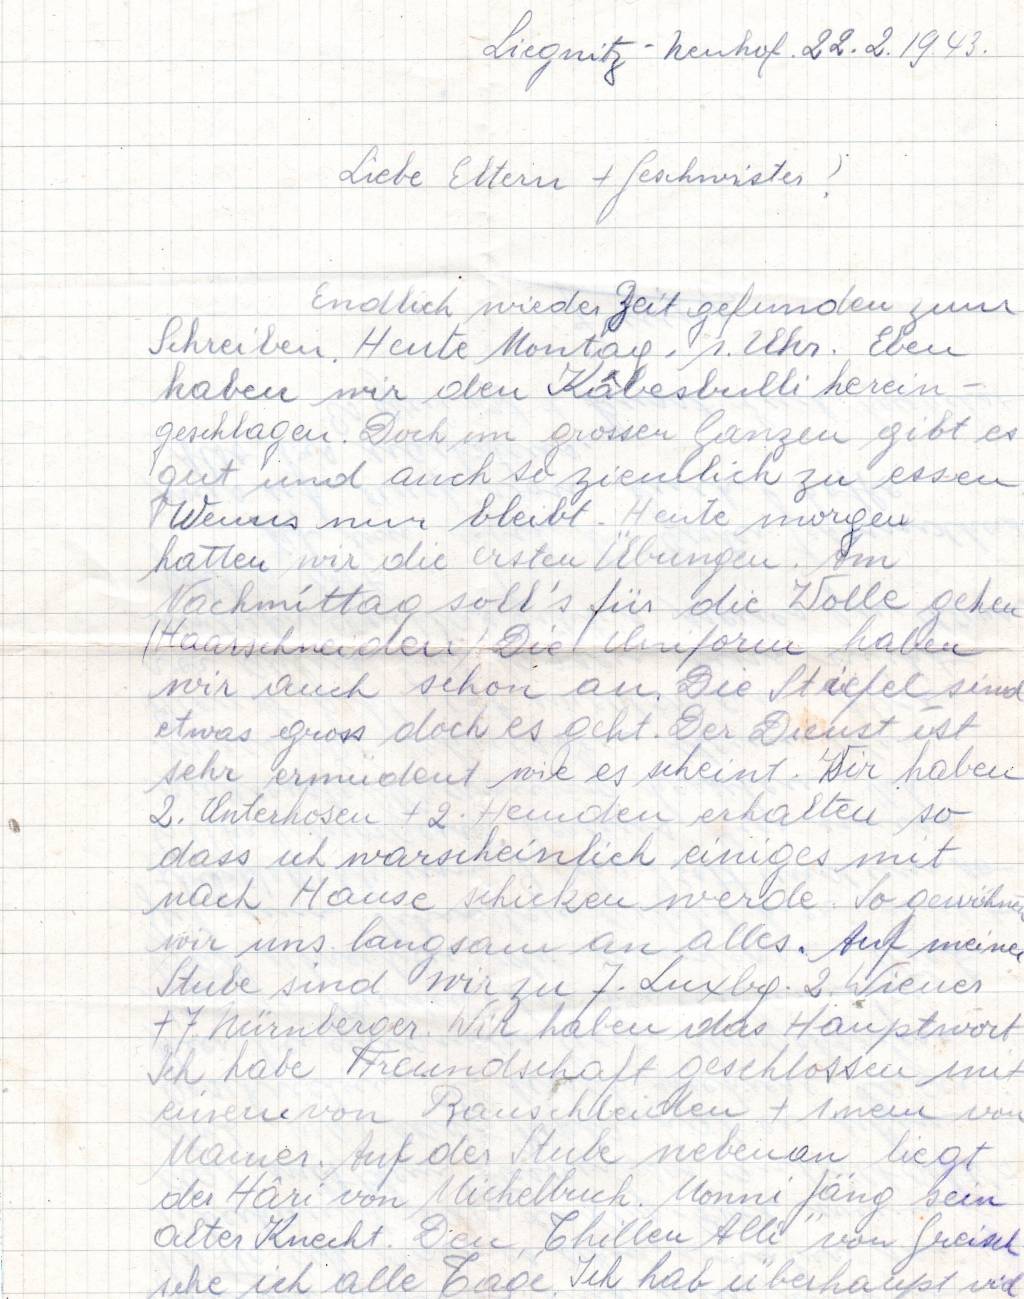 Liegnitz-Neuhof. 22.2.1943.
Liebe Eltern + Geschwister!
Endlich wieder Zeit gefunden zum
Schreiben. Heute Montag, 1. Uhr. Eben
haben wir den Kâbesbulli herein-
geschlagen. Doch im grossen Ganzen gibt es
gut und auch so ziemlich zu essen
Wenns nur bleibt. Heute morgen
hatten wir die ersten Übungen. Am
Nachmittag soll's für die Wolle gehen
(Haarschneiden) Die Uniform haben
wir auch schon an. Die Stiefel sind
etwas gross doch es geht. Der Dienst ist
sehr ermüdent wie es scheint. Wir haben
2. Unterhosen + 2. Hemden erhalten so
dass ich warscheinlich einiges mit
nach Hause schicken werde. So gewöhnen
wir uns langsam an alles. Auf meiner
Stube sind wir zu 7. Luxbg. 2. Wiener
+ 7. Nürnberger. Wir haben das Hauptwort
Ich habe Freundschaft geschlossen mit
einem von Rauschleiden + einem von
Mamer. Auf der Stube nebenan liegt
der Hâri von Michelbuch. Monni Jäng sein
alter Knecht. Den "Thillen Alli" von Greisch
sehe ich alle Tage. Ich hab überhaupt viel